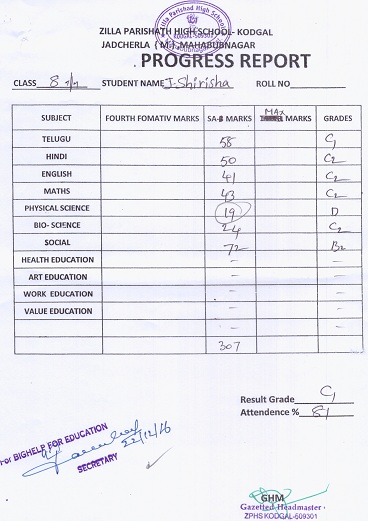 Zilla Parishad High School
KODGAL-509301
ZILLA PARISHATH HIGH SCHOOL- KODGAL
JADCHERLA (M), MAHABUBNAGAR
PROGRESS REPORT
CLASS 8 STUDENT NAME J. Shirisha ROLL NO
SUBJECT FOURTH FOMATIV MARKS SA- MARKS MAX MARKS GRADES
TELUGU 58 C1
HINDI 50 C2
ENGLISH 41 C2
MATHS 43 C2
PHYSICAL SCIENCE 19 D
BIO- SCIENCE 24 C2
SOCIAL 72 B2
HEALTH EDUCATION - -
ART EDUCATION - -
WORK EDUCATION - -
VALUE EDUCATION - -
- -
307
Result Grade C1
Attendence % 81
For BIGHELP FOR EDUCATION
22/12/16
SECRETARY
GHM
Gazetted Headmaster
ZPHS KODGAL-509301